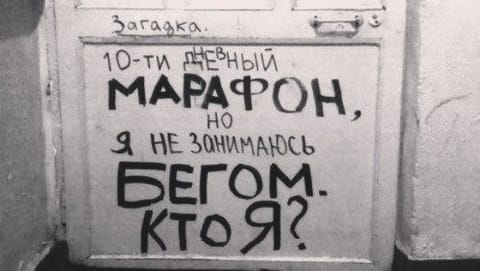 Загадка.
10-ти дневный
МАРАФОН,
но
я не занимаюсь
БЕГОМ.
Кто я?